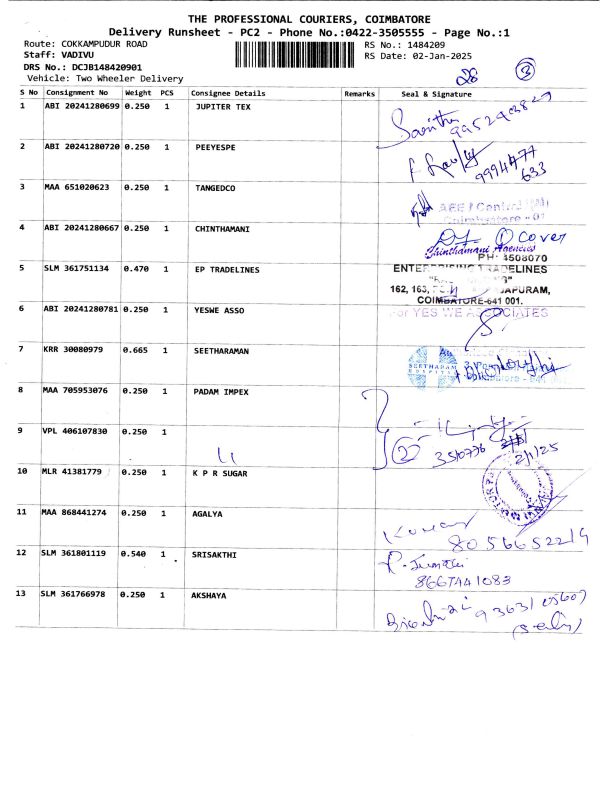 THE PROFESSIONAL COURIERS, COIMBATORE
Delivery Runsheet - PC2 - Phone No.:0422-3505555 - Page No.:1
Route: COKKAMPUDUR ROAD RS No.: 1484209
Staff: VADIVU RS Date: 02-Jan-2025
DRS No.: DCJB148420901
Vehicle: Two Wheeler Delivery
28 3
S No Consignment No Weight PCS Consignee Details Remarks Seal & Signature
1 ABI 20241280699 0.250 1 JUPITER TEX
2 ABI 20241280720 0.250 1 PEEYESPE
9994477
633
3 MAA 651020623 0.250 1 TANGEDCO
Coimbatore
4 ABI 20241280667 0.250 1 CHINTHAMANI
1 Cover
Chinthamani Agencies
PH: 4508070
5 SLM 361751134 0.470 1 EP TRADELINES
ENTERPRISING TRADELINES
162, 163,
COIMBATORE-641 001.
6 ABI 20241280781 0.250 1 YESWE ASSO
For YES WE ASSOCIATES
7 KRR 30080979 0.665 1 SEETHARAMAN
SEETHARAM
HOSPITAL
8 MAA 705953076 0.250 1 PADAM IMPEX
9 VPL 406107830 0.250 1
2 2/1/25
10 MLR 41381779 0.250 1 K P R SUGAR
11 MAA 868441274 0.250 1 AGALYA
Kumar
8056652219
12 SLM 361801119 0.540 1 SRISAKTHI
8667441083
13 SLM 361766978 0.250 1 AKSHAYA